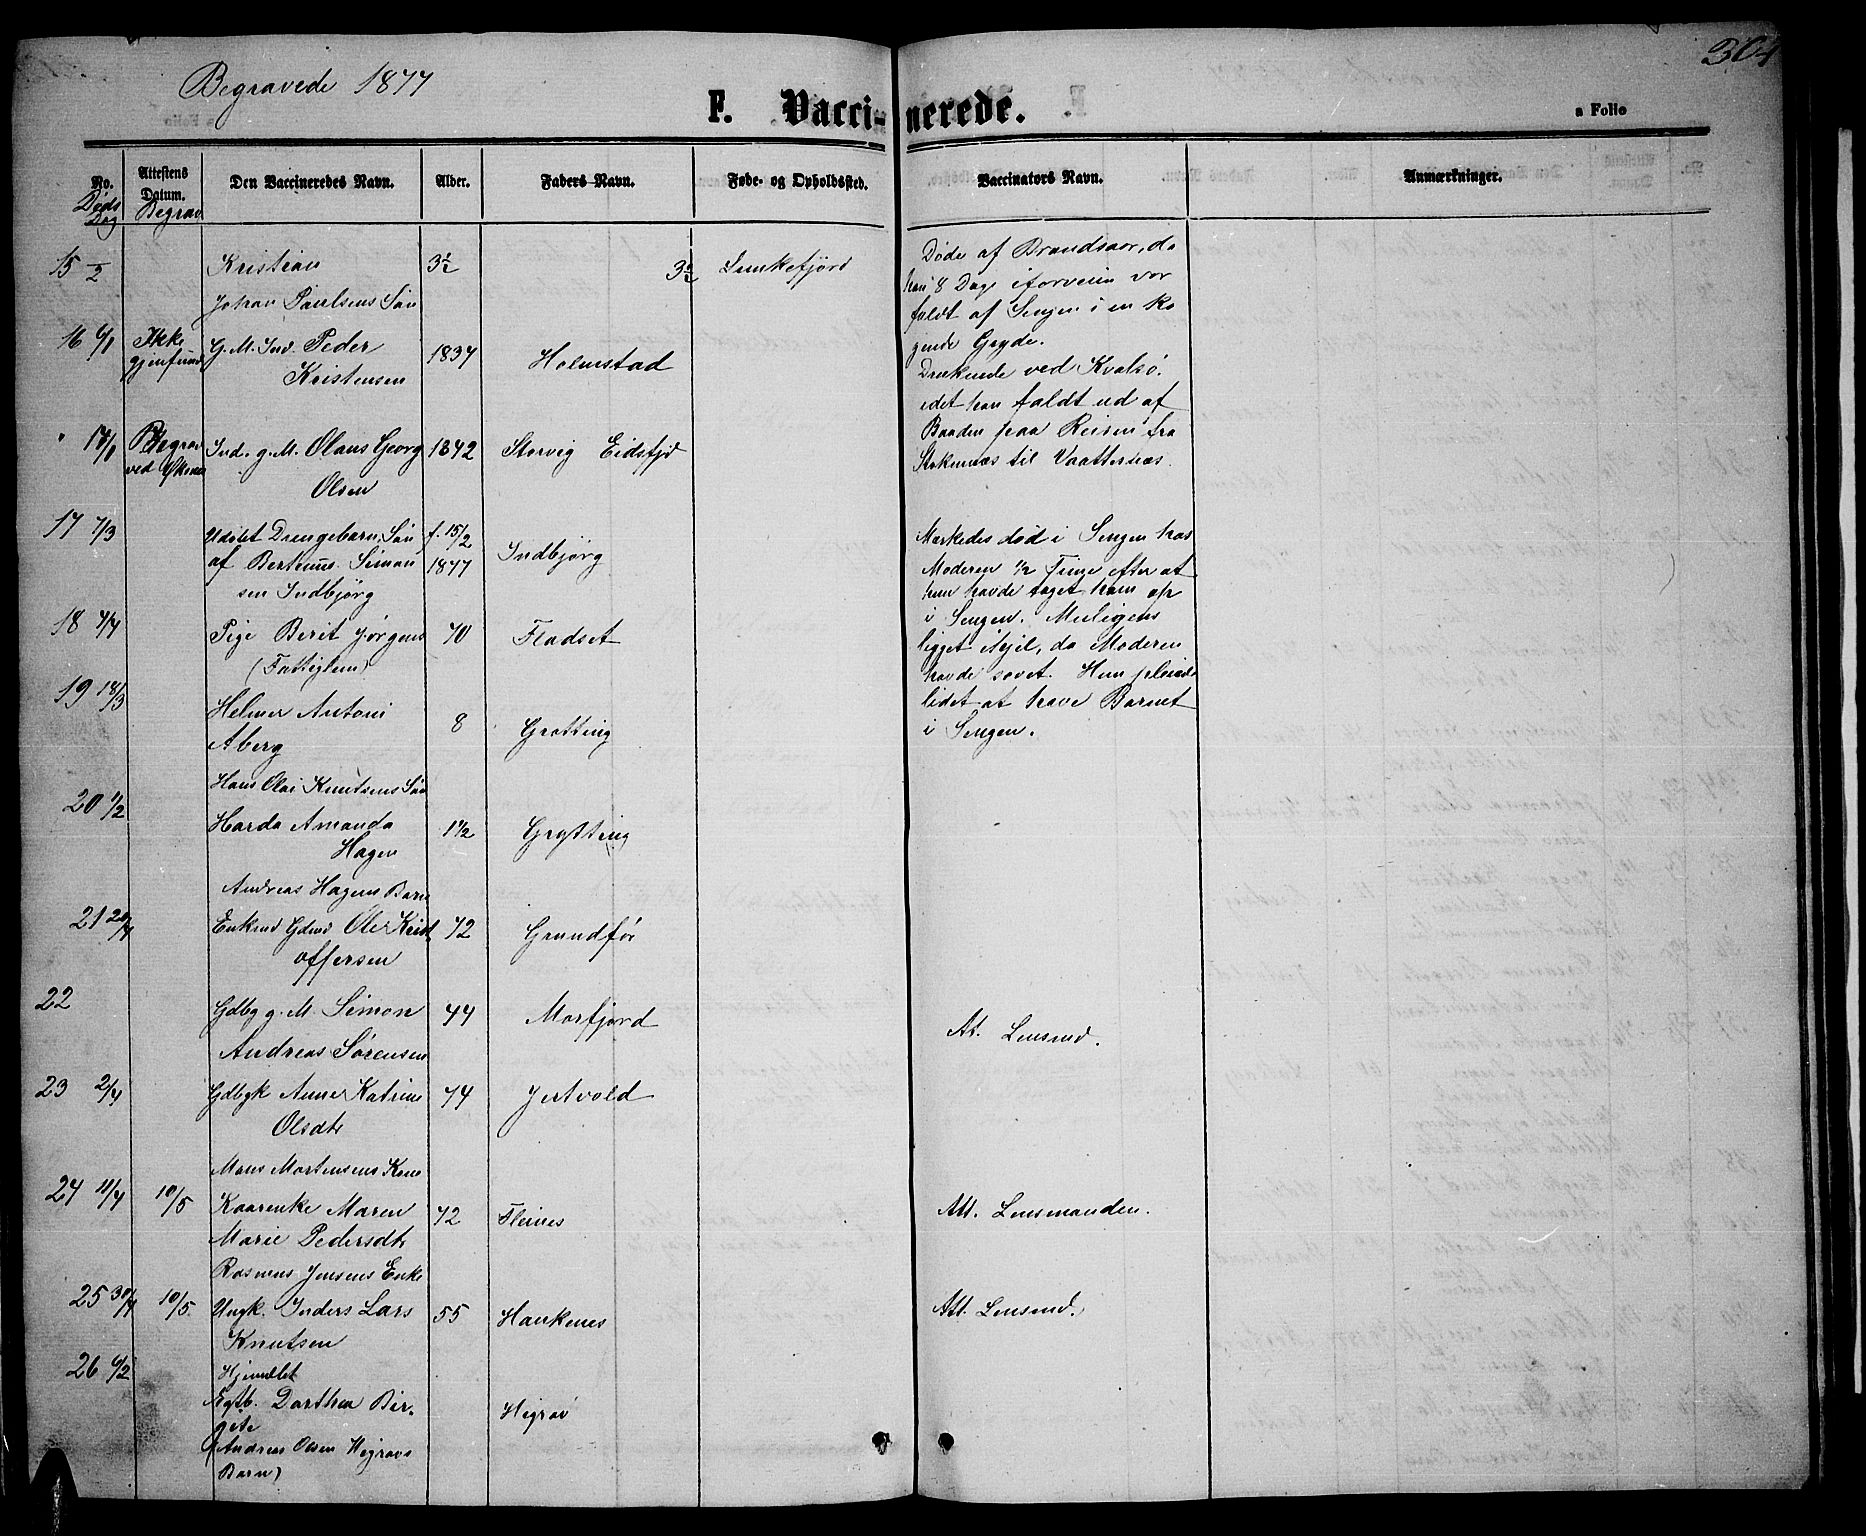 Begravede 1877
304
F. Vaccinerede.
a Folio
No.
Attestens Datum.
Den Vaccineredes Navn.
Alder.
Faders Navn.
Føde- og Opholdssted.
Vaccinators Navn.
Anmærkninger.
Døds Dag
Begrav
15 /2 Kristian 3½ 3½
Johan Paulsens Søn
Døde af Brandsaar, da
han 8 Dage iforveien var
faldt af Sengen i en ko
gende Gryde.
16 6/1 Ikke gjenfund G. M. Ind. Peder 1837 Holmstad
Kristensen
Druknede ved Kvalsø.
edet han faldt ud af
Baaden paa Reisen fra
Stokmnæs til Vaatternæs.
17/1 Begrav ved Ind. g. M. Olaus Georg 1842 Storvig Eidsfjd
Olsen
17 7/3 Udøbt Drengebarn, Søn f. 15/2
af Bertinus Simon 1877 Indbjørg
sen Indbjørg
Mærkedes død i Sengen hos
Moderen ½ Time efter at
hun havde taget ham op
i Sengen. Muligens
ligget ihjel, da Moderen
havde sovet. Hun
lidet at have Barnet
i Sengen.
18 4/4 Pige Berit Jørgens 70 Fladset
(Fattiglem)
19 18/3 Helmer Antoni
Aberg 8 Grotting
Hans Olai Knutsens Søn
20 1/2 Harda Amanda 1½ Grytting
Hagen
Andreas Hagens Barn
21 20/4 Enkmd Gdmd Ole Krist 72 Grundfør
offersen
22 Gdbg g. M. Simon 44 Morfjord
Andreas Sørensen
At. Lensmd.
23 2/4 Gdbgk Anne Katrine 74 Jertvold
Olsdtr
Mons Mortensens Kone
24 11/4 10/5 Kaarenke Maren 72 Fleines
Marie Pedersdtr
Att. Lensmanden.
Rasmus Jensens Enke
25 30/4 10/5. Ungk. Inders Lars 55 Haukenes
Knutsen
Att. Lensmd.
26 6/2 Hjemdbt
Egtb. Dorthea Bir-
gete Hegrav
(Andreas Olsen Hegravs
Barn)